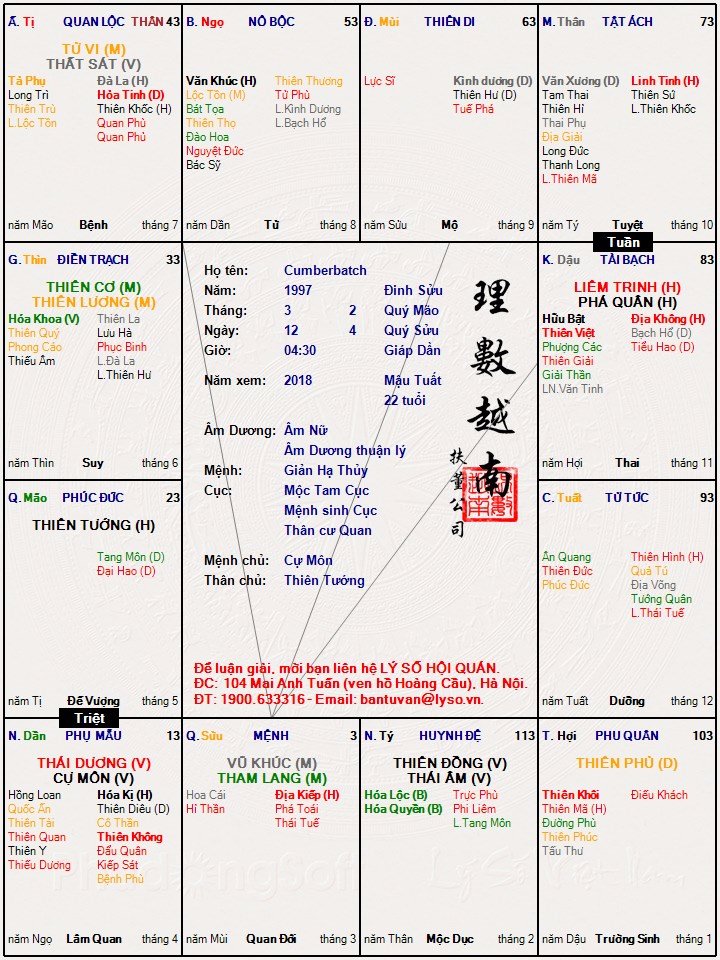 Ă. Tị QUAN LỘC THÂN 43
TỬ VI (M)
THẤT SÁT (V)
Tả Phụ Đà La (H)
Long Trì Hỏa Tinh (D)
Thiên Trù Thiên Khốc (H)
L.Lộc Tồn Quan Phù
Quan Phủ
năm Mão Bệnh tháng 7
B. Ngọ NÔ BỘC 53
Văn Khúc (H) Thiên Thương
Lộc Tồn (M) Tử Phù
Bát Tọa L.Kình Dương
Thiên Thọ L.Bạch Hổ
Đào Hoa
Nguyệt Đức
Bác Sỹ
năm Dần Tử tháng 8
Đ. Mùi THIÊN DI 63
Lực Sĩ Kình dương (D)
Thiên Hư (D)
Tuế Phá
năm Sửu Mộ tháng 9
M. Thân TẬT ÁCH 73
Văn Xương (D) Linh Tinh (H)
Tam Thai Thiên Sứ
Thiên Hỉ L.Thiên Khốc
Thai Phụ
Địa Giải
Long Đức
Thanh Long
L.Thiên Mã
năm Tý Tuyệt tháng 10
Tuần
G. Thìn ĐIỀN TRẠCH 33
THIÊN CƠ (M)
THIÊN LƯƠNG (M)
Hóa Khoa (V) Thiên La
Thiên Quý Lưu Hà
Phong Cáo Phục Binh
Thiếu Âm L.Đà La
L.Thiên Hư
năm Thìn Suy tháng 6
Họ tên: Cumberbatch
Năm: 1997 Đinh Sửu
Tháng: 3 2 Quý Mão
Ngày: 12 4 Quý Sửu
Giờ: 04:30 Giáp Dần
Năm xem: 2018 Mậu Tuất
22 tuổi
Âm Dương: Âm Nữ
Âm Dương thuận lý
Mệnh: Giản Hạ Thủy
Cục: Mộc Tam Cục
Mệnh sinh Cục
Thân cư Quan
Mệnh chủ: Cự Môn
Thân chủ: Thiên Tướng
理數越南
扶董公司
Để luận giải, mời bạn liên hệ LÝ SỐ HỘI QUÁN.
ĐC: 104 Mai Anh Tuấn (ven hồ Hoàng Cầu), Hà Nội.
ĐT: 1900.633316 - Email: bantuvan@lyso.vn.
K. Dậu TÀI BẠCH 83
LIÊM TRINH (H)
PHÁ QUÂN (H)
Hữu Bật Địa Không (H)
Thiên Việt Bạch Hổ (D)
Phượng Các Tiểu Hao (D)
Thiên Giải
Giải Thần
LN.Văn Tinh
năm Hợi Thai tháng 11
Q. Mão PHÚC ĐỨC 23
THIÊN TƯỚNG (H)
Tang Môn (D)
Đại Hao (D)
năm Tị Đế Vượng tháng 5
C. Tuất TỬ TỨC 93
Ân Quang Thiên Hình (H)
Thiên Đức Quả Tú
Phúc Đức Địa Võng
Tướng Quân
L.Thái Tuế
năm Tuất Dưỡng tháng 12
Triệt
N. Dần PHỤ MẪU 13
THÁI DƯƠNG (V)
CỰ MÔN (V)
Hồng Loan Hóa Kị (H)
Quốc Ấn Thiên Diêu (D)
Thiên Tài Cô Thần
Thiên Quan Thiên Không
Thiên Y Đẩu Quân
Thiếu Dương Kiếp Sát
Bệnh Phù
năm Ngọ Lâm Quan tháng 4
Q. Sửu MỆNH 3
VŨ KHÚC (M)
THAM LANG (M)
Hoa Cái Địa Kiếp (H)
Hỉ Thần Phá Toái
Thái Tuế
năm Mùi Quan Đới tháng 3
N. Tý HUYNH ĐỆ 113
THIÊN ĐỒNG (V)
THÁI ÂM (V)
Hóa Lộc (B) Trực Phù
Hóa Quyền (B) Phi Liêm
L.Tang Môn
năm Thân Mộc Dục tháng 2
T. Hợi PHU QUÂN 103
THIÊN PHỦ (D)
Thiên Khôi Điếu Khách
Thiên Mã (H)
Đường Phù
Thiên Phúc
Tấu Thư
năm Dậu Trường Sinh tháng 1